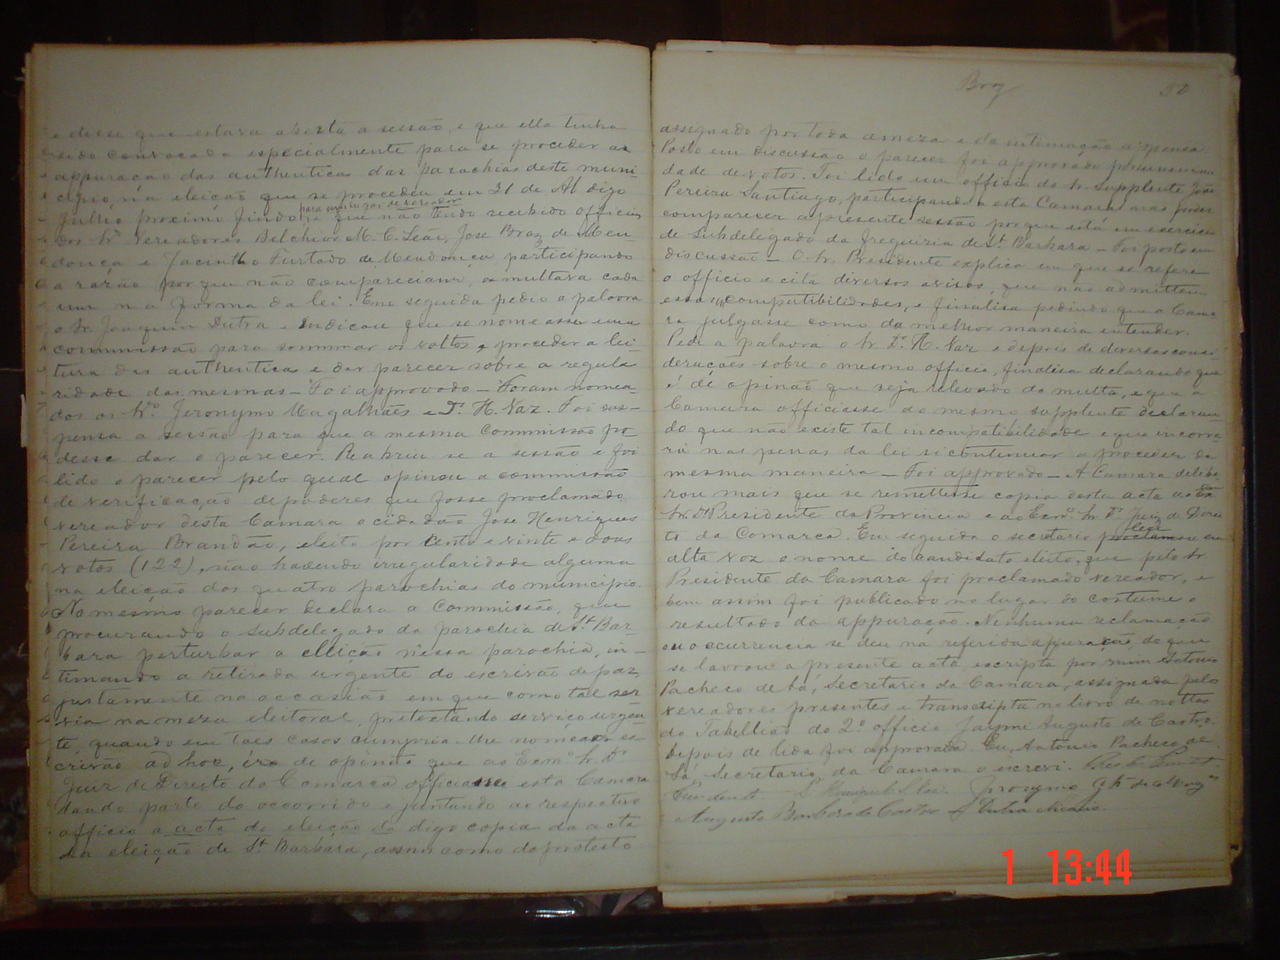 e disse que estava aberta a sessão, e que ella tinha
sido convocada especialmente para se proceder as
appuração das authenticas das parochias deste muni-
cipio, na eleição que se procedeu em 21 de Ab digo
para um lugar de vereador
Julho proximo findo, e que não tendo recebido officio
dos Srs Vereadores Belchior M. C. Leão, Jose Braz de Men-
donça e Jacintho Furtado de Mendonça participando
a razão porque não compareciam, os multava cada
um na forma da lei. Em seguida pedio a palavra
o Sr Joaquim Dutra e indicou que se nomeasse uma
commissão para sommar os vottos, e proceder a lei-
tura das authenticas e dar parecer sobre a regula
ridade das mesmas - Foi approvado - Foram nomea-
dos os Srs Jeronymo Magalhães e Dr H. Vaz. Foi sus-
pensa a sessão para que a mesma Commissão po
desse dar o parecer. Reabriu-se a sessão e foi
lido o parecer pelo qual opinou a commissão
de verificação de poderes que fosse proclamado
vereador desta Camara o cidadão Jose Henriques
Pereira Brandão, eleito por cento e vinte e dous
votos (122), não havendo irregularidade alguma
na eleição das quatro parochias do municipio.
No mesmo parecer declara a Commissão, que
procurando o subdelegado da parochia de Sta Bar-
bara perturbar a elleição nessa parochia, in-
timando a retirada urgente do escrivão de paz,
justamente na occasião em que como tal ser
via na meza eleitoral, pretextando serviço urgen-
te, quando em taes casos cumpria-lhe nomear es-
crivão ad hoc, era de opinião que ao Exmo Sr Dr
Juiz de Direito da Comarca officiasse esta Camara
dando parte do occorrido e juntando ao respectivo
officio a acta de eleição da digo copia da acta
da eleição de Sta Barbara, assim como do protesto
Braz 50
assignado por toda a meza e da intimação a
Posto em discussão o parecer foi approvado por unanimi
dade de votos. Foi lido um officio do Sr. supplente João
Pereira Santiago, participando a esta Camara não poder
comparecer a presente sessão porque está em exercicio
de subdelegado da freguizia de Sta Barbara - Foi posto em
discussão - O Sr. Presidente explica em que se refere
o officio e cita diversos avisos, que não admittem
essas incompatibilidades, e finalisa pedindo que a Cama
ra julgasse como da melhor maneira entender.
Pede a palavra o Sr. Dr. H. Vaz e depois de diversas consi-
derações sobre o mesmo officio, finalisa declarando que
é de opinião que seja relevado da multa, e que a
Camara officiasse ao mesmo supplente declaran
do que não existe tal incompatibilidade e que incorre
rá nas penas da lei si continuar a proceder da
mesma maneira - Foi approvado - A Camara delibe
rou mais que se remettesse copia desta acta ao Exmo
Sr. Dr Presidente da Provincia e ao Exmo. Sr Dr Juiz de Direi
to da Comarca. Em seguida o secretario
leu
proclamou em
alta voz o nome do candidato eleito, que pelo Sr
Presidente da Camara foi proclamado vereador, e
bem assim foi publicado no lugar do costume o
resultado da appuração. Nenhuma reclamação
ou occurrencia se deu na referida apuração, de que
se lavrou a presente acta escripta por mim Antonio
Pacheco de Sá, Secretario da Camara, assignada pelos
vereadores presentes e transcripta no livro de nottas
do Tabellião do 2º officio Jaymi Augusto de Castro.
depois de lida foi approvada. Eu, Antonio Pacheco de
Sá, Secretario da Camara o escrevi.
Jeronymo
Augusto Barbosa de Castro
1 13:44